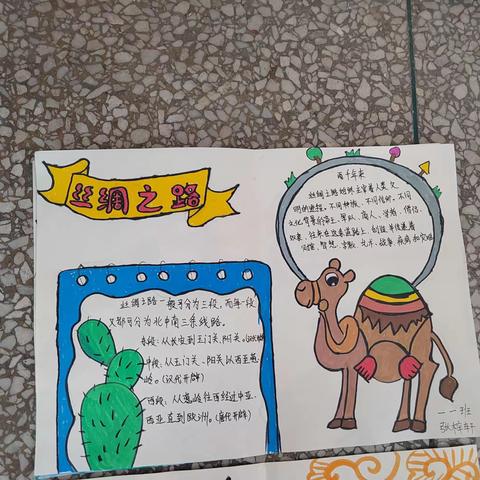 丝绸之路
两千年来
丝绸之路始终主宰着人类文
明的进程。不同种族、不同信仰、不同
文化背景的帝王、军队、商人、学者、僧侣、
奴隶、往来在这条道路上、创造并传递着
财富、智慧、宗教、艺术、战争、疾病和灾难
丝绸之路一般可分为三段，而每一段
又都可分为北中南三条线路。
东段：从长安到玉门关、阳关。(汉代开辟)
中段：从玉门关、阳关以西至葱
岭。(汉代开辟)
西段：从葱岭往西经过中亚、
西亚直到欧洲。(唐代开辟)
一一班